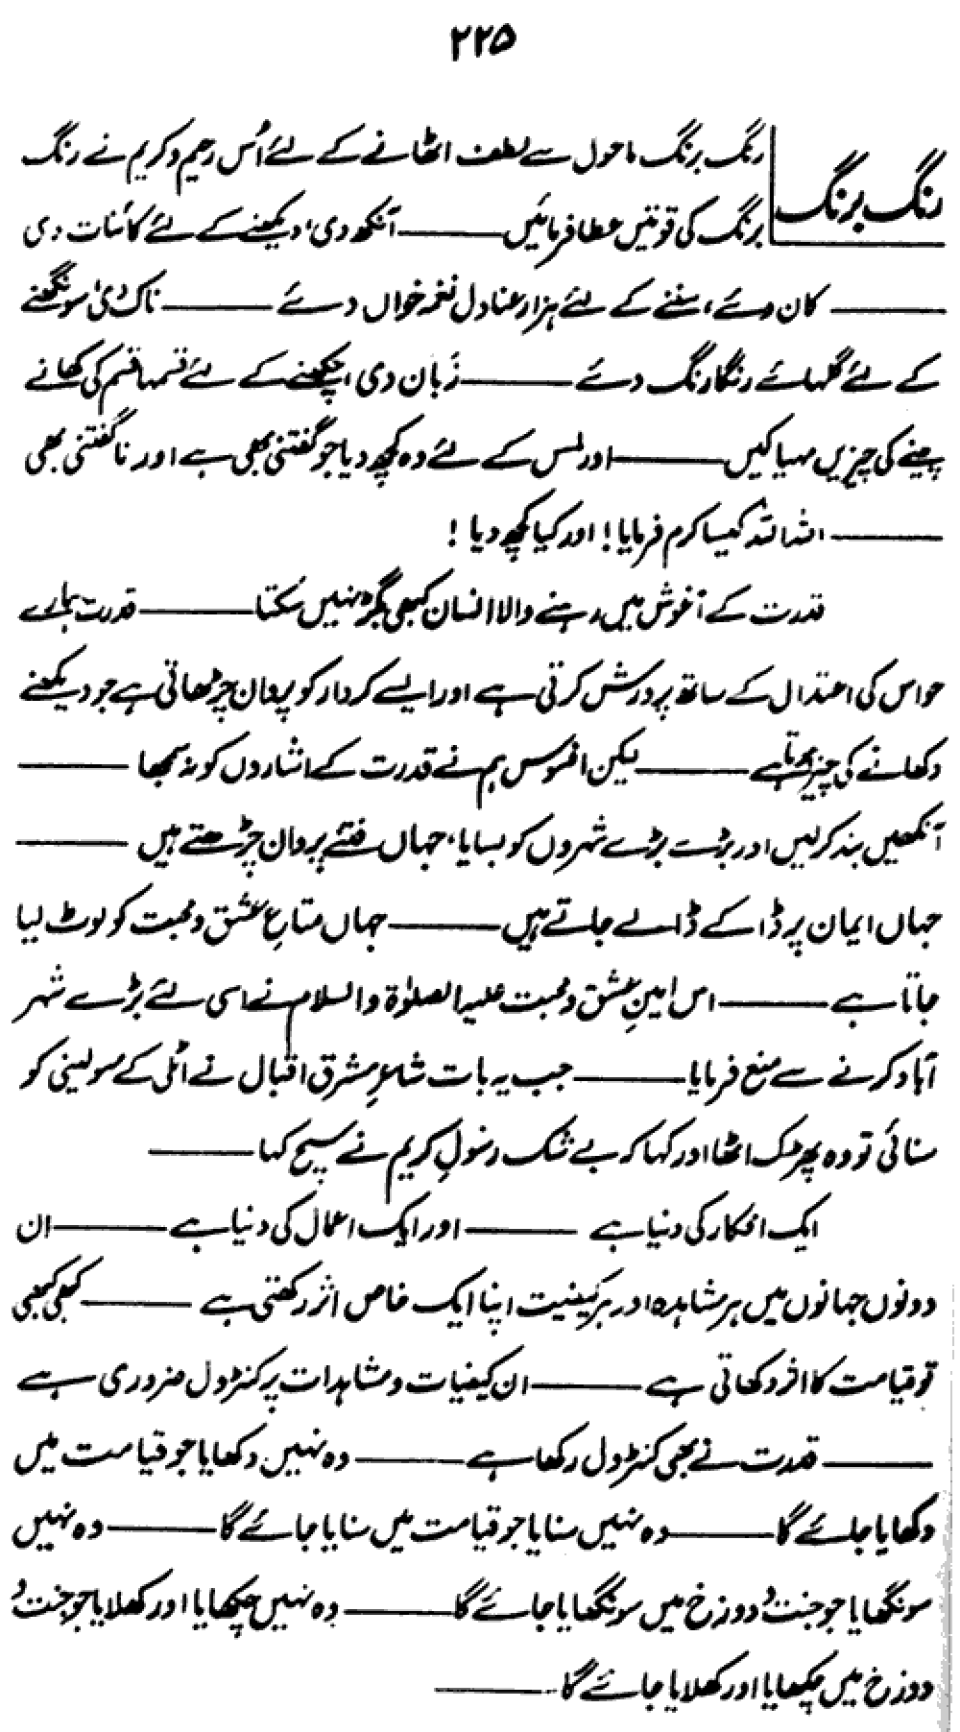 ۲۲۵
رنگ برنگ
رنگ برنگ ماحول سے لطف اٹھانے کے لئے اُس رحیم و کریم نے رنگ
برنگ کی قوتیں عطا فرمائیں ——— آنکھ دی، دیکھنے کے لئے کائنات دی
——— کان دئے، سننے کے لئے ہزار عنادل نغمہ خواں دئے ——— ناک دی، سونگھنے
کے لئے گلہائے رنگارنگ دئے ——— زبان دی، چکھنے کے لئے قسمہا قسم کی کھانے
پینے کی چیزیں مہیا کیں ——— اور لمس کے لئے وہ کچھ دیا جو گفتنی بھی ہے اور ناگفتنی بھی
——— اللہ اللہ کیسا کرم فرمایا! اور کیا کچھ دیا!
قدرت کے آغوش میں رہنے والا انسان کبھی بگڑ نہیں سکتا ——— قدرت ہمارے
حواس کی اعتدال کے ساتھ پرورش کرتی ہے اور ایسے کردار کو پروان چڑھاتی ہے جو دیکھنے
دکھانے کی چیز ہوتا ہے ——— لیکن افسوس ہم نے قدرت کے اشاروں کو نہ سمجھا ———
آنکھیں بند کر لیں اور بڑے بڑے شہروں کو بسایا، جہاں فتنے پروان چڑھتے ہیں ———
جہاں ایمان پر ڈاکے ڈالے جاتے ہیں ——— جہاں متاعِ عشق و محبت کو لوٹ لیا
جاتا ہے ——— اس امینِ عشق و محبت علیہ الصلوٰۃ والسلام نے اسی لئے بڑے شہر
آباد کرنے سے منع فرمایا ——— جب یہ بات شاعرِ مشرق اقبال نے اٹلی کے مسولینی کو
سنائی تو وہ پھڑک اٹھا اور کہا کہ بے شک رسولِ کریم نے سچ کہا ———
ایک افکار کی دنیا ہے ——— اور ایک اعمال کی دنیا ہے ——— ان
دونوں جہانوں میں ہر مشاہدہ اور ہر کیفیت اپنا ایک خاص اثر رکھتی ہے ——— کبھی کبھی
تو قیامت کا اثر دکھاتی ہے ——— ان کیفیات و مشاہدات پر کنٹرول ضروری ہے
——— قدرت نے بھی کنٹرول رکھا ہے ——— وہ نہیں دکھایا جو قیامت میں
دکھایا جائے گا ——— وہ نہیں سنایا جو قیامت میں سنایا جائے گا ——— وہ نہیں
سونگھایا جو جنت و دوزخ میں سونگھایا جائے گا ——— وہ نہیں چکھایا اور کھلایا جو جنت و
دوزخ میں چکھایا اور کھلایا جائے گا ———